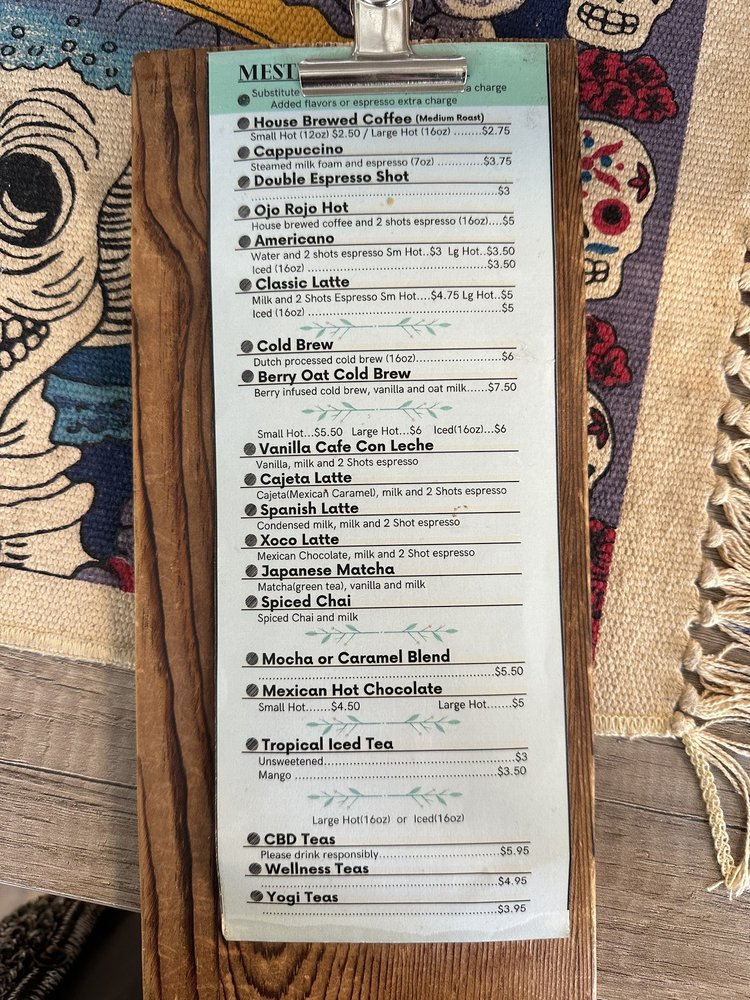 MEST
Substitute a charge
Added flavors or espresso extra charge
House Brewed Coffee (Medium Roast)
Small Hot (12oz) $2.50 / Large Hot (16oz) ........$2.75
Cappuccino
Steamed milk foam and espresso (7oz) .............$3.75
Double Espresso Shot
.....................................................................$3
Ojo Rojo Hot
House brewed coffee and 2 shots espresso (16oz)....$5
Americano
Water and 2 shots espresso Sm Hot..$3 Lg Hot..$3.50
Iced (16oz) ................................................$3.50
Classic Latte
Milk and 2 Shots Espresso Sm Hot....$4.75 Lg Hot..$5
Iced (16oz) ....................................................$5
Cold Brew
Dutch processed cold brew (16oz)......................$6
Berry Oat Cold Brew
Berry infused cold brew, vanilla and oat milk......$7.50
Small Hot...$5.50 Large Hot...$6 Iced(16oz)...$6
Vanilla Cafe Con Leche
Vanilla, milk and 2 Shots espresso
Cajeta Latte
Cajeta(Mexican Caramel), milk and 2 Shots espresso
Spanish Latte
Condensed milk, milk and 2 Shot espresso
Xoco Latte
Mexican Chocolate, milk and 2 Shot espresso
Japanese Matcha
Matcha(green tea), vanilla and milk
Spiced Chai
Spiced Chai and milk
Mocha or Caramel Blend
..............................................................$5.50
Mexican Hot Chocolate
Small Hot.......$4.50 Large Hot.......$5
Tropical Iced Tea
Unsweetened...................................................$3
Mango ......................................................$3.50
Large Hot(16oz) or Iced(16oz)
CBD Teas
Please drink responsibly................................$5.95
Wellness Teas
...............................................................$4.95
Yogi Teas
...............................................................$3.95